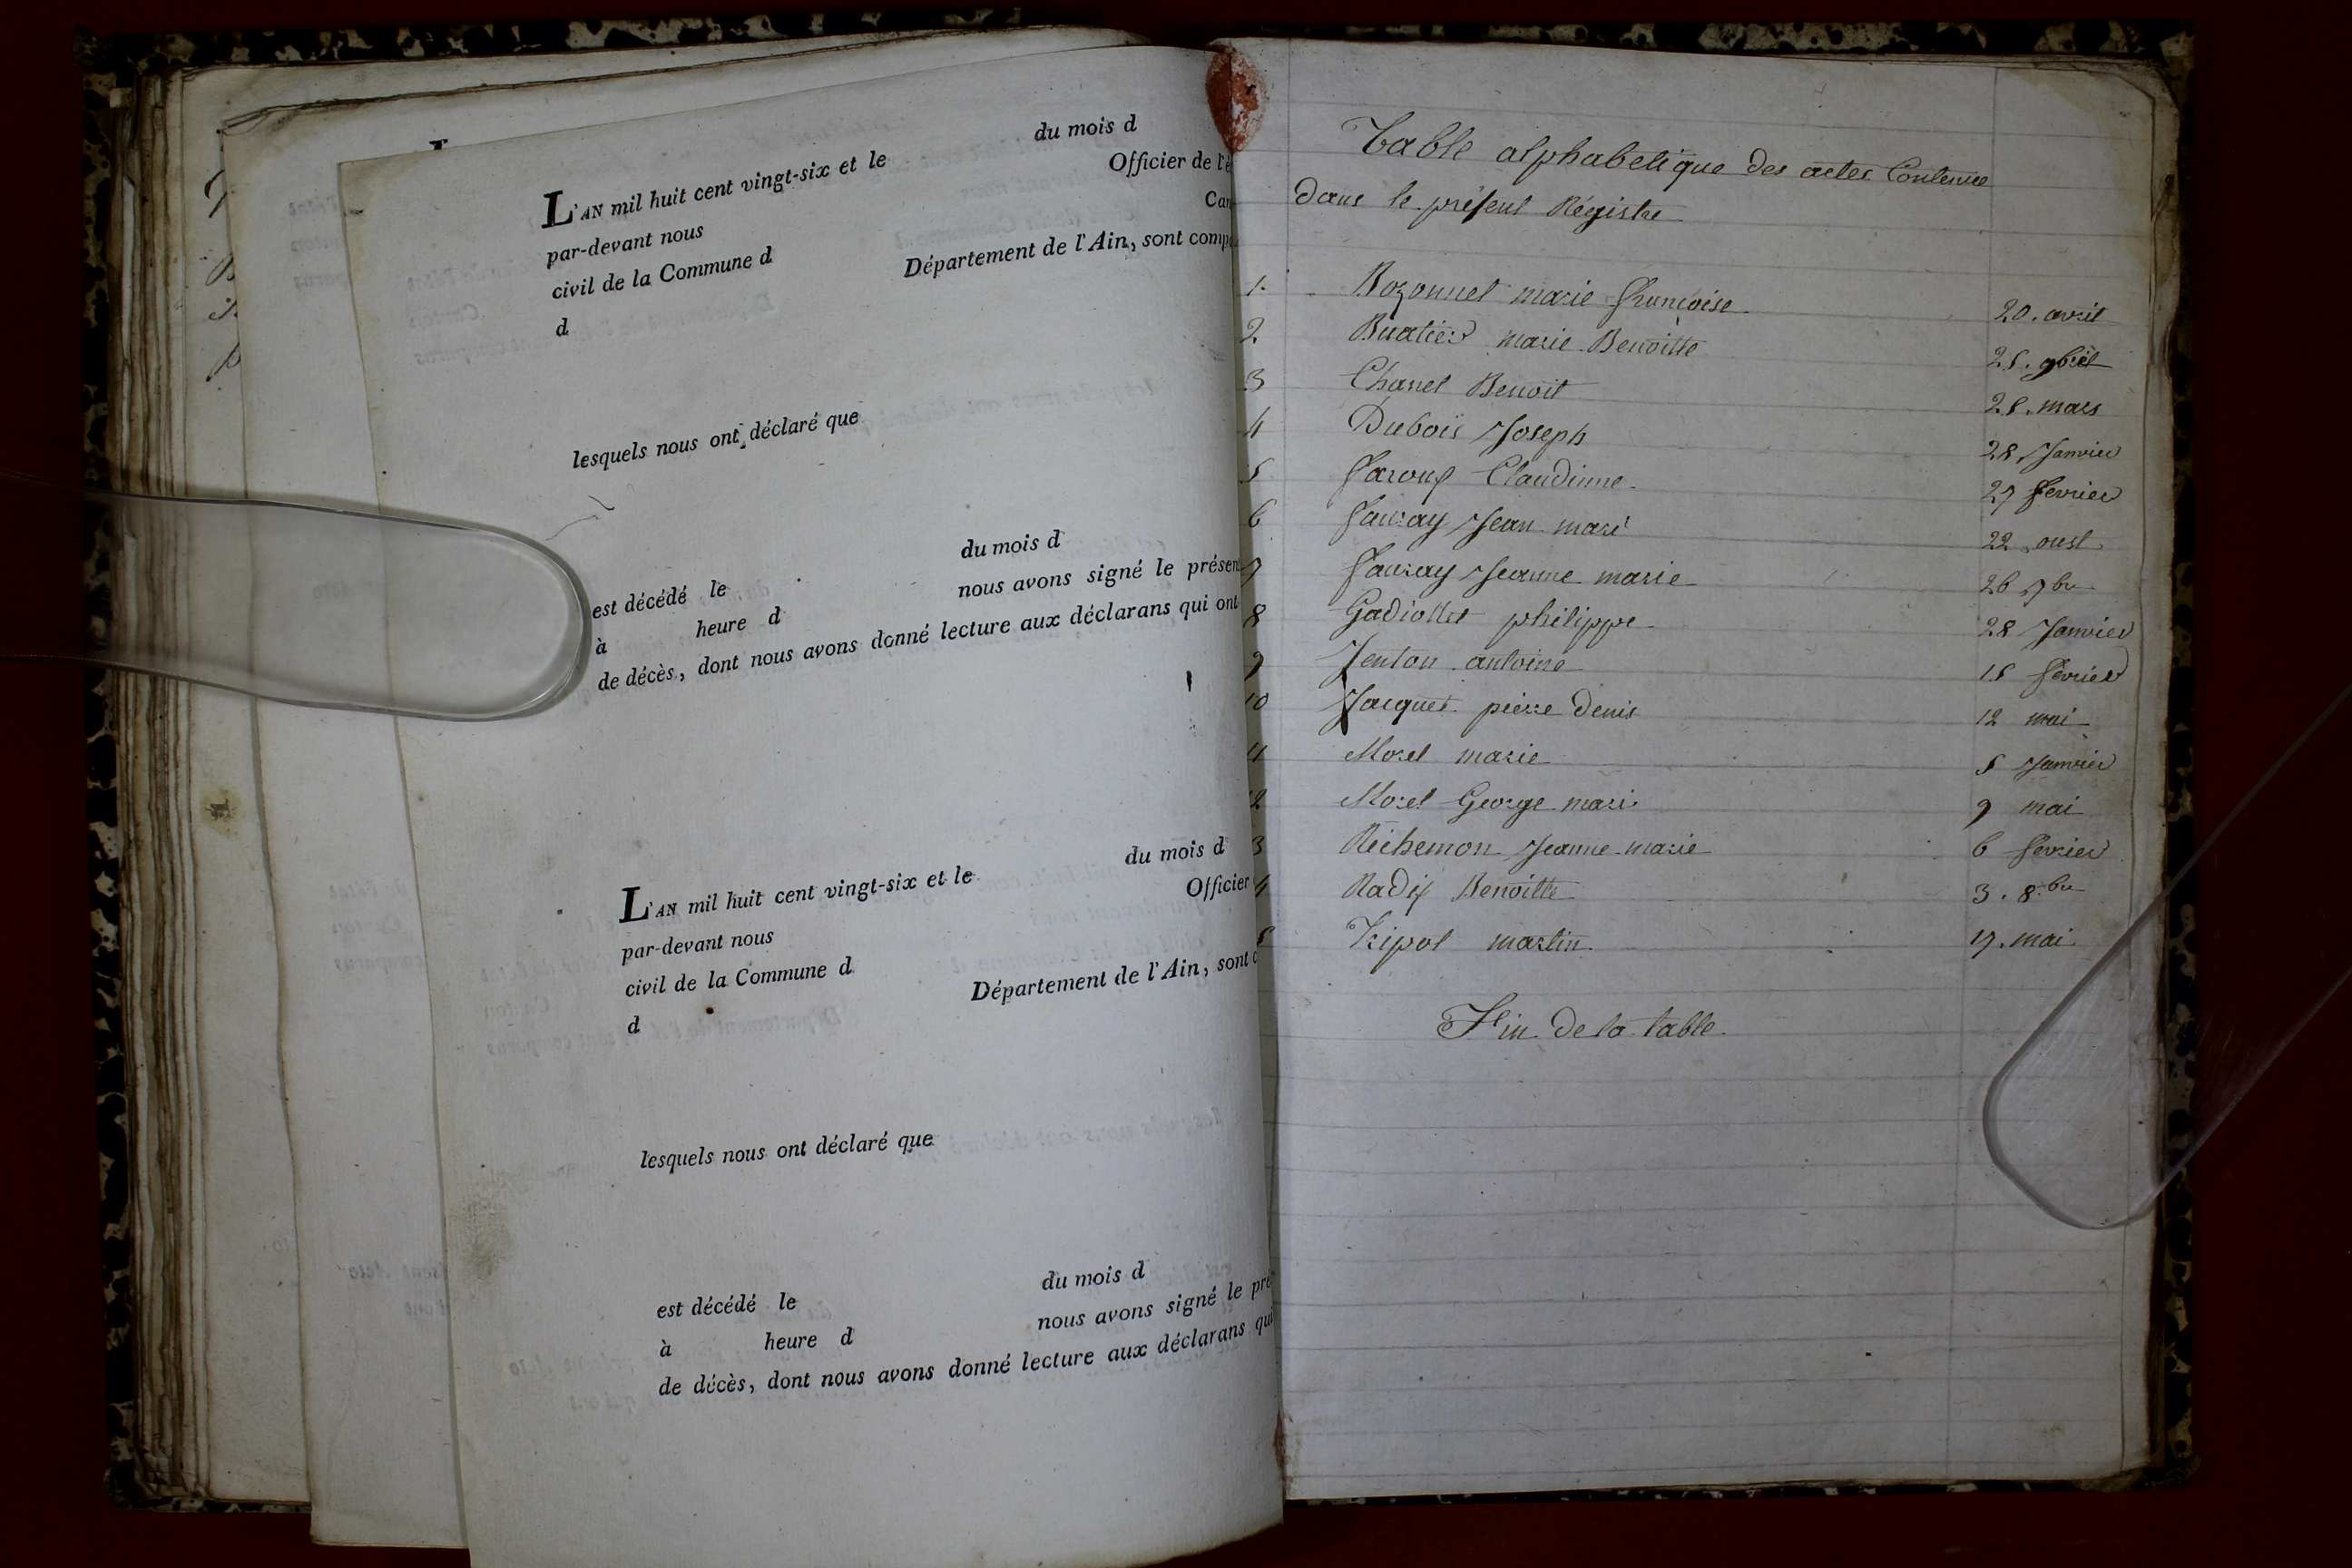 du mois d
L'AN mil huit cent vingt-six et le
Officier de l'é
par-devant nous
Can
civil de la Commune d
Département de l'Ain, sont comp
d
lesquels nous ont déclaré que
du mois d
est décédé le
nous avons signé le présen
à heure d
de décès, dont nous avons donné lecture aux déclarans qui ont
du mois d
L'AN mil huit cent vingt-six et le
Officier
par-devant nous
civil de la Commune d
Département de l'Ain, sont c
d
lesquels nous ont déclaré que
du mois d
est décédé le
nous avons signé le pré
à heure d
de décès, dont nous avons donné lecture aux déclarans qui
Table alphabetique des actes Contenue
dans le présent Régistre
1. Bozonnet marie francoise 20. avril
2 Buatier marie Benoitte 25.
3 Chanel Benoit 28. mars
4 Dubois Joseph 28 Janvier
5 Claudinne 27 fevrier
6 Favray Jean mari 22 oust
7 Favray Jeanne marie 26 7bre
8 Gadiollet philippe 28 Janvier
9 Jenton antoine 15 fevrier
10 Jacquet pierre Denis 12 mai
11 Morel marie 5 Janvier
12 Morel George mari 9 mai
3 Richemon Jeanne marie 6 fevrier
4 Radix Benoitte 3. 8.bre
5 Tripot martin 17. mai
Fin de la table